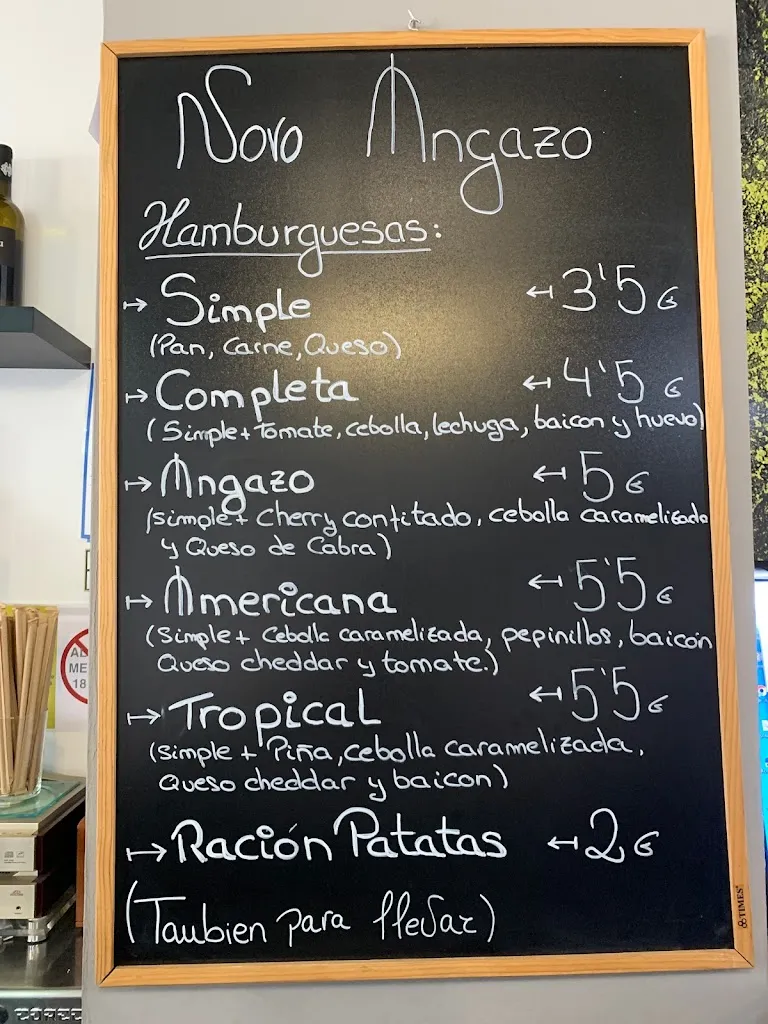 Novo Angazo
Hamburguesas:
↦ Simple ↤ 3'5 €
(Pan, Carne, Queso)
↦ Completa ↤ 4'5 €
(Simple + Tomate, cebolla, lechuga, baicon y huevo)
↦ Angazo ↤ 5 €
(simple + Cherry confitado, cebolla caramelizada
y Queso de Cabra)
↦ Americana ↤ 5'5 €
(Simple + Cebolla caramelizada, pepinillos, baicon
Queso cheddar y tomate.)
↦ Tropical ↤ 5'5 €
(Simple + Piña, cebolla caramelizada,
Queso cheddar y baicon)
↦ Ración Patatas ↤ 2 €
(Taubien para llevar)
TIMES
18